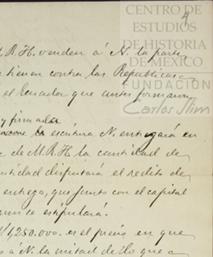 CENTRO DE
ESTUDIOS
DE HISTORIA
DE MÉXICO
FUNDACIÓN
Carlos Slim
M.R.H. venden á N. la parte
tienen contra las Republicas
el Ecuador que antes forman
y firmada
la escritura N. entregará en
de M.R.H. la cantidad de
tidad disfrutará el redito de
entrega, que junto con el capital
se estipulará.
1,250.000. es el precio en que
á N. la mitad de lo que a